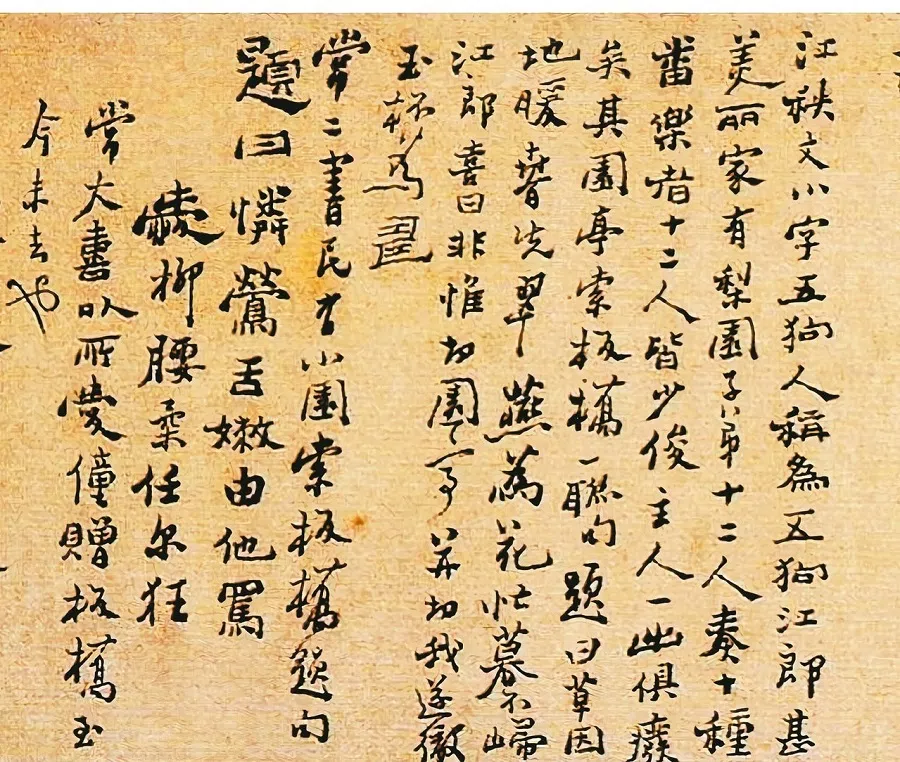 江秩文小字五狗人稱為五狗江郎甚
美丽家有梨園子弟十二人奏十種
番樂者十二人皆少俊主人一出俱廢
矣其園亭索板橋一聯句題曰草因
地暖春先翠燕為花忙暮不歸
江郎喜曰非惟切園亭并切我遂徹
玉杯為壽
常二書民有小園索板橋題句
題曰憐鶯舌嫩由他罵
愛柳腰柔任尔狂
常大喜以所愛僮贈板橋至
今未去也